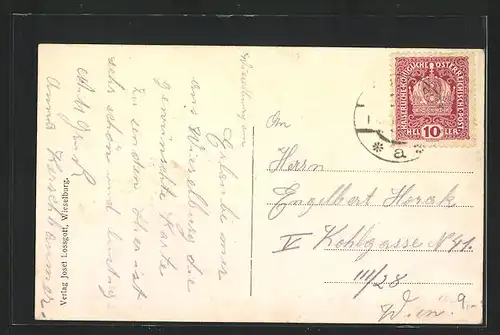 Wieselburg am
Erlaube mir
aus Wieselburg die
gewünschte Karte
zu senden. Hier ist
sehr schön und lustig.
Anna Kerschbaumer.
Verlag Josef Lossgott, Wieselburg.
KAISERLICHE KÖNIGLICHE ÖSTERREICHISCHE POST
HEL 10 LER
* a *
An
Herrn
Engelbert Horak
V Kohlgasse N 41.
III/28
Wien.
9.-